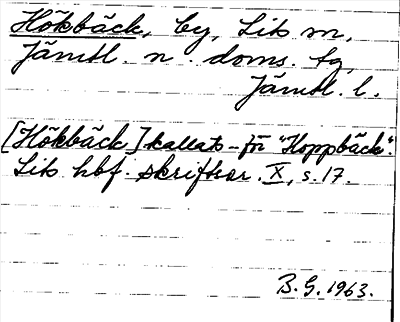 Hökbäck, by, Lits sn,
Jämtl. n. doms. tg,
Jämtl. l.
[Hökbäck] kallats förr "Hoppbäck".
Lits hbf. skriftser. X, s. 17.
B. G. 1963.